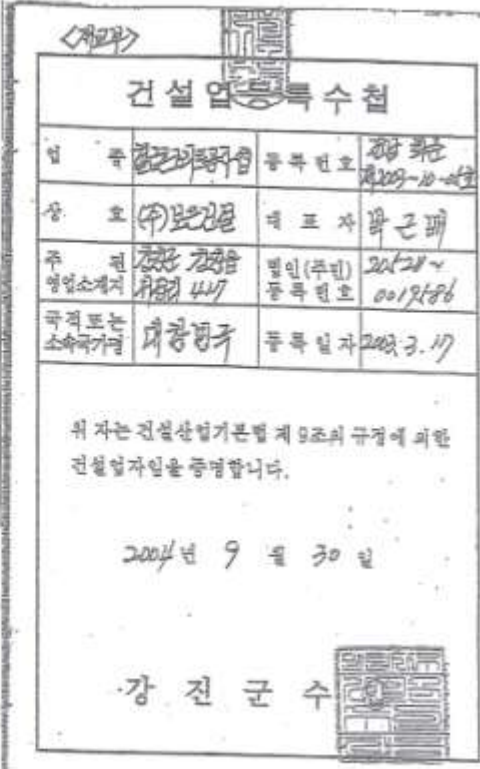 <재교부>
건설업등록수첩
업 종 철근콘크리트공사업 등록번호 전남 화순
제2003-10-05호
상 호 (주)보은건설 대 표 자 박근배
주 된 강진군 강진읍 법인(주민) 205211~
영업소재지 417 등록번호 0019586
국적또는
소속국가명 대한민국 등록일자 2003. 3. 17
위 자는 건설산업기본법 제9조의 규정에 의한
건설업자임을 증명합니다.
2004년 9 월 30 일
강 진 군 수